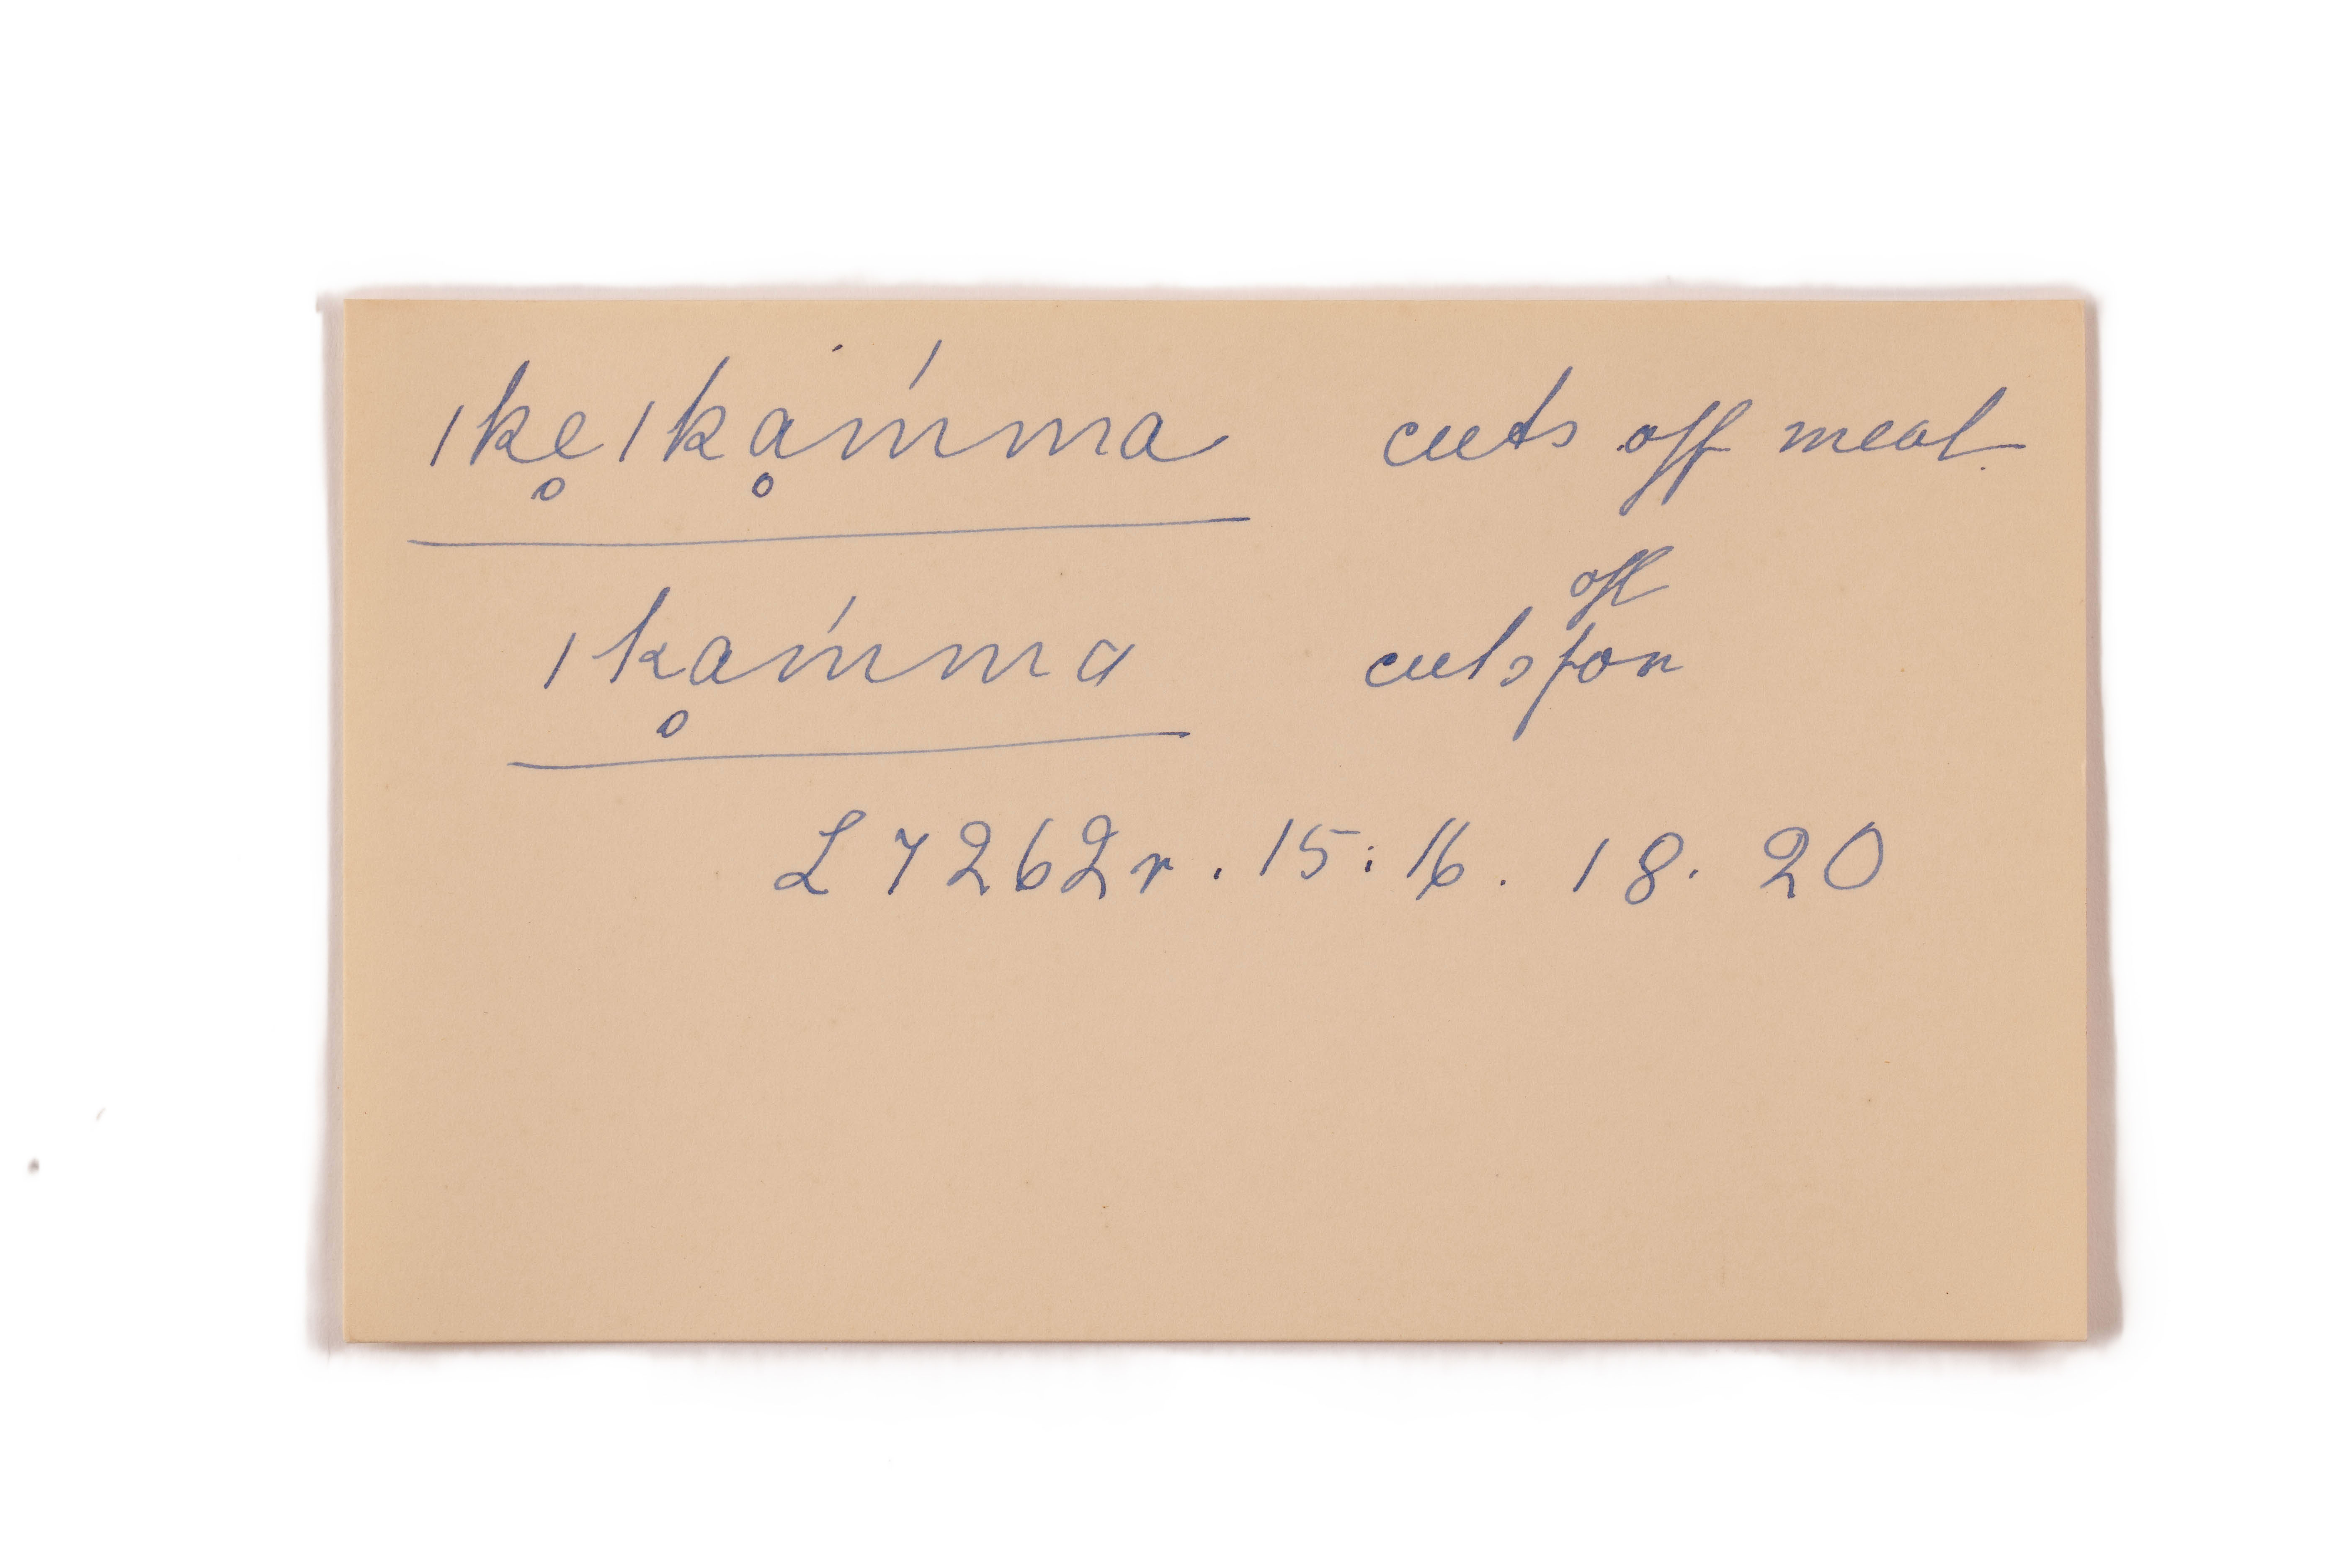 ǀke̥ǀkḁḿma cuts off meat.
ǀkḁḿma cuts off for
L 7262r. 15: 16. 18. 20